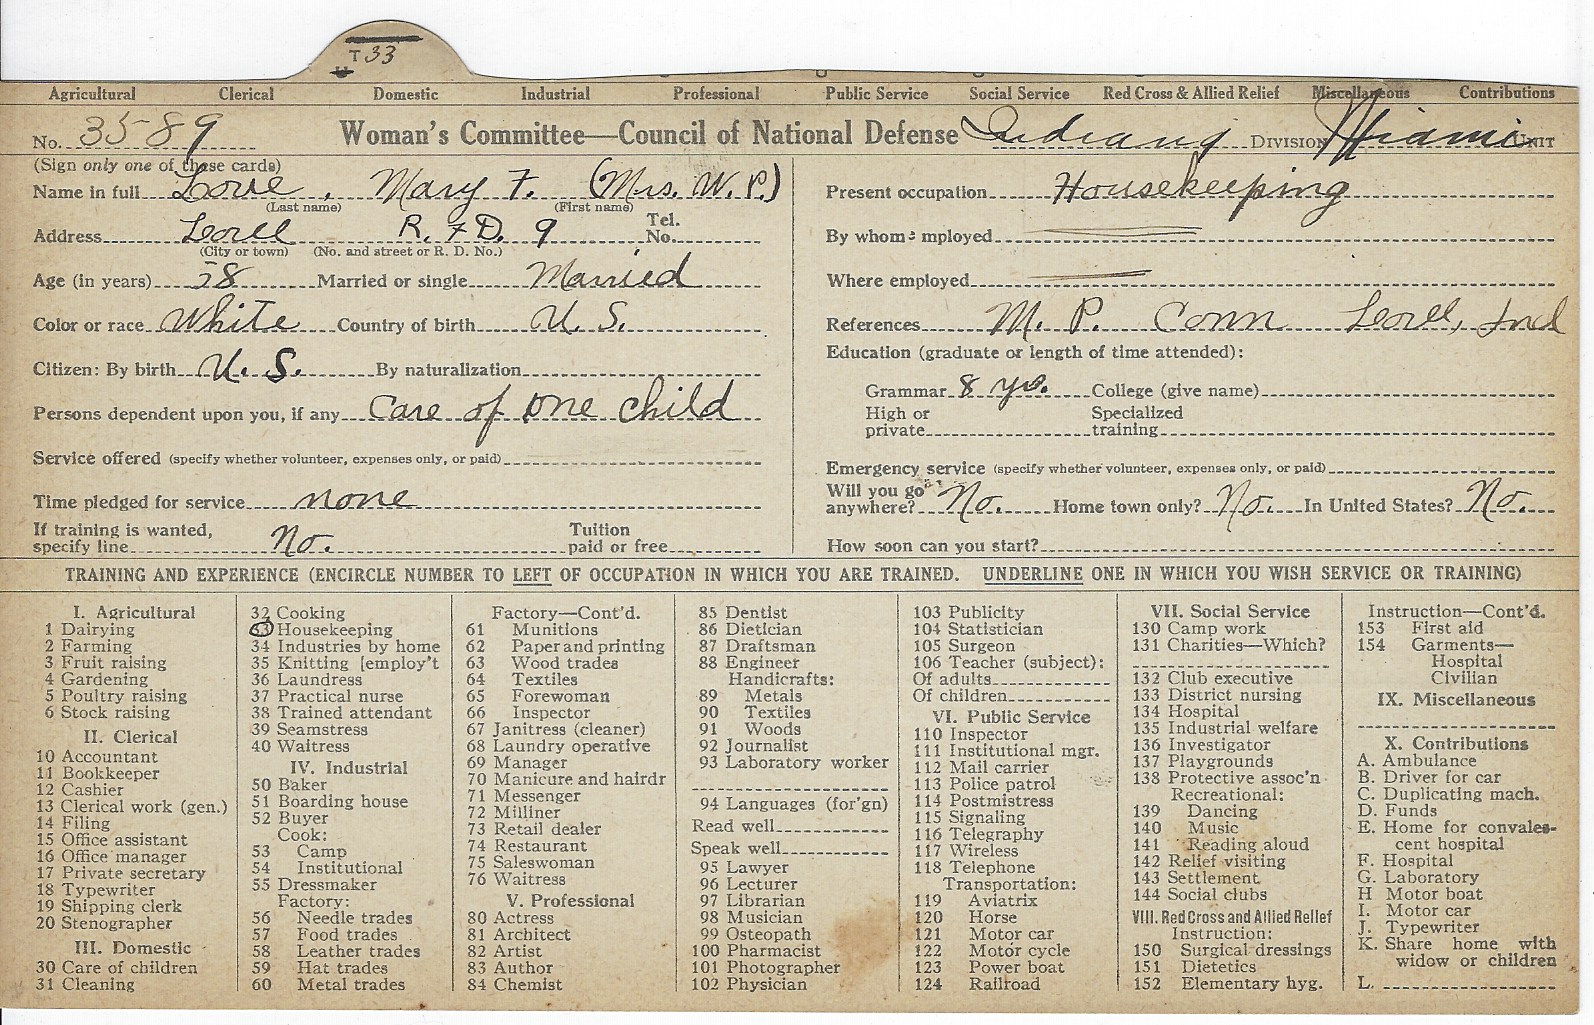 T 33
Agricultural Clerical Domestic Industrial Professional Public Service Social Service Red Cross & Allied Relief Miscellaneous Contributions
No. 3589 Woman's Committee—Council of National Defense Indiana DIVISION Miami UNIT
(Sign only one of these cards)
Name in full Love, Mary F. (Mrs. W. P.)
(Last name) (First name)
Address Loree R. F D. 9 Tel. No.
(City or town) (No. and street or R. D. No.)
Age (in years) 58 Married or single Married
Color or race White Country of birth U. S.
Citizen: By birth U. S. By naturalization
Persons dependent upon you, if any Care of one child
Service offered (specify whether volunteer, expenses only, or paid)
Time pledged for service none
If training is wanted, specify line No. Tuition paid or free
Present occupation Housekeeping
By whom employed
Where employed
References M. P. Conn Loree, Ind
Education (graduate or length of time attended):
Grammar 8 yrs. College (give name)
High or private Specialized training
Emergency service (specify whether volunteer, expenses only, or paid)
Will you go anywhere? No. Home town only? No. In United States? No.
How soon can you start?
TRAINING AND EXPERIENCE (ENCIRCLE NUMBER TO LEFT OF OCCUPATION IN WHICH YOU ARE TRAINED. UNDERLINE ONE IN WHICH YOU WISH SERVICE OR TRAINING)
I. Agricultural
1 Dairying
2 Farming
3 Fruit raising
4 Gardening
5 Poultry raising
6 Stock raising
II. Clerical
10 Accountant
11 Bookkeeper
12 Cashier
13 Clerical work (gen.)
14 Filing
15 Office assistant
16 Office manager
17 Private secretary
18 Typewriter
19 Shipping clerk
20 Stenographer
III. Domestic
30 Care of children
31 Cleaning
32 Cooking
33 Housekeeping
34 Industries by home
35 Knitting [employ't
36 Laundress
37 Practical nurse
38 Trained attendant
39 Seamstress
40 Waitress
IV. Industrial
50 Baker
51 Boarding house
52 Buyer
Cook:
53 Camp
54 Institutional
55 Dressmaker
Factory:
56 Needle trades
57 Food trades
58 Leather trades
59 Hat trades
60 Metal trades
Factory—Cont'd.
61 Munitions
62 Paper and printing
63 Wood trades
64 Textiles
65 Forewoman
66 Inspector
67 Janitress (cleaner)
68 Laundry operative
69 Manager
70 Manicure and hairdr
71 Messenger
72 Milliner
73 Retail dealer
74 Restaurant
75 Saleswoman
76 Waitress
V. Professional
80 Actress
81 Architect
82 Artist
83 Author
84 Chemist
85 Dentist
86 Dietician
87 Draftsman
88 Engineer
Handicrafts:
89 Metals
90 Textiles
91 Woods
92 Journalist
93 Laboratory worker
94 Languages (for'gn)
Read well
Speak well
95 Lawyer
96 Lecturer
97 Librarian
98 Musician
99 Osteopath
100 Pharmacist
101 Photographer
102 Physician
103 Publicity
104 Statistician
105 Surgeon
106 Teacher (subject):
Of adults
Of children
VI. Public Service
110 Inspector
111 Institutional mgr.
112 Mail carrier
113 Police patrol
114 Postmistress
115 Signaling
116 Telegraphy
117 Wireless
118 Telephone
Transportation:
119 Aviatrix
120 Horse
121 Motor car
122 Motor cycle
123 Power boat
124 Railroad
VII. Social Service
130 Camp work
131 Charities—Which?
132 Club executive
133 District nursing
134 Hospital
135 Industrial welfare
136 Investigator
137 Playgrounds
138 Protective assoc'n
Recreational:
139 Dancing
140 Music
141 Reading aloud
142 Relief visiting
143 Settlement
144 Social clubs
VIII. Red Cross and Allied Relief
Instruction:
150 Surgical dressings
151 Dietetics
152 Elementary hyg.
Instruction—Cont'd.
153 First aid
154 Garments—
Hospital
Civilian
IX. Miscellaneous
X. Contributions
A. Ambulance
B. Driver for car
C. Duplicating mach.
D. Funds
E. Home for convales-
cent hospital
F. Hospital
G. Laboratory
H Motor boat
I. Motor car
J. Typewriter
K. Share home with
widow or children
L.